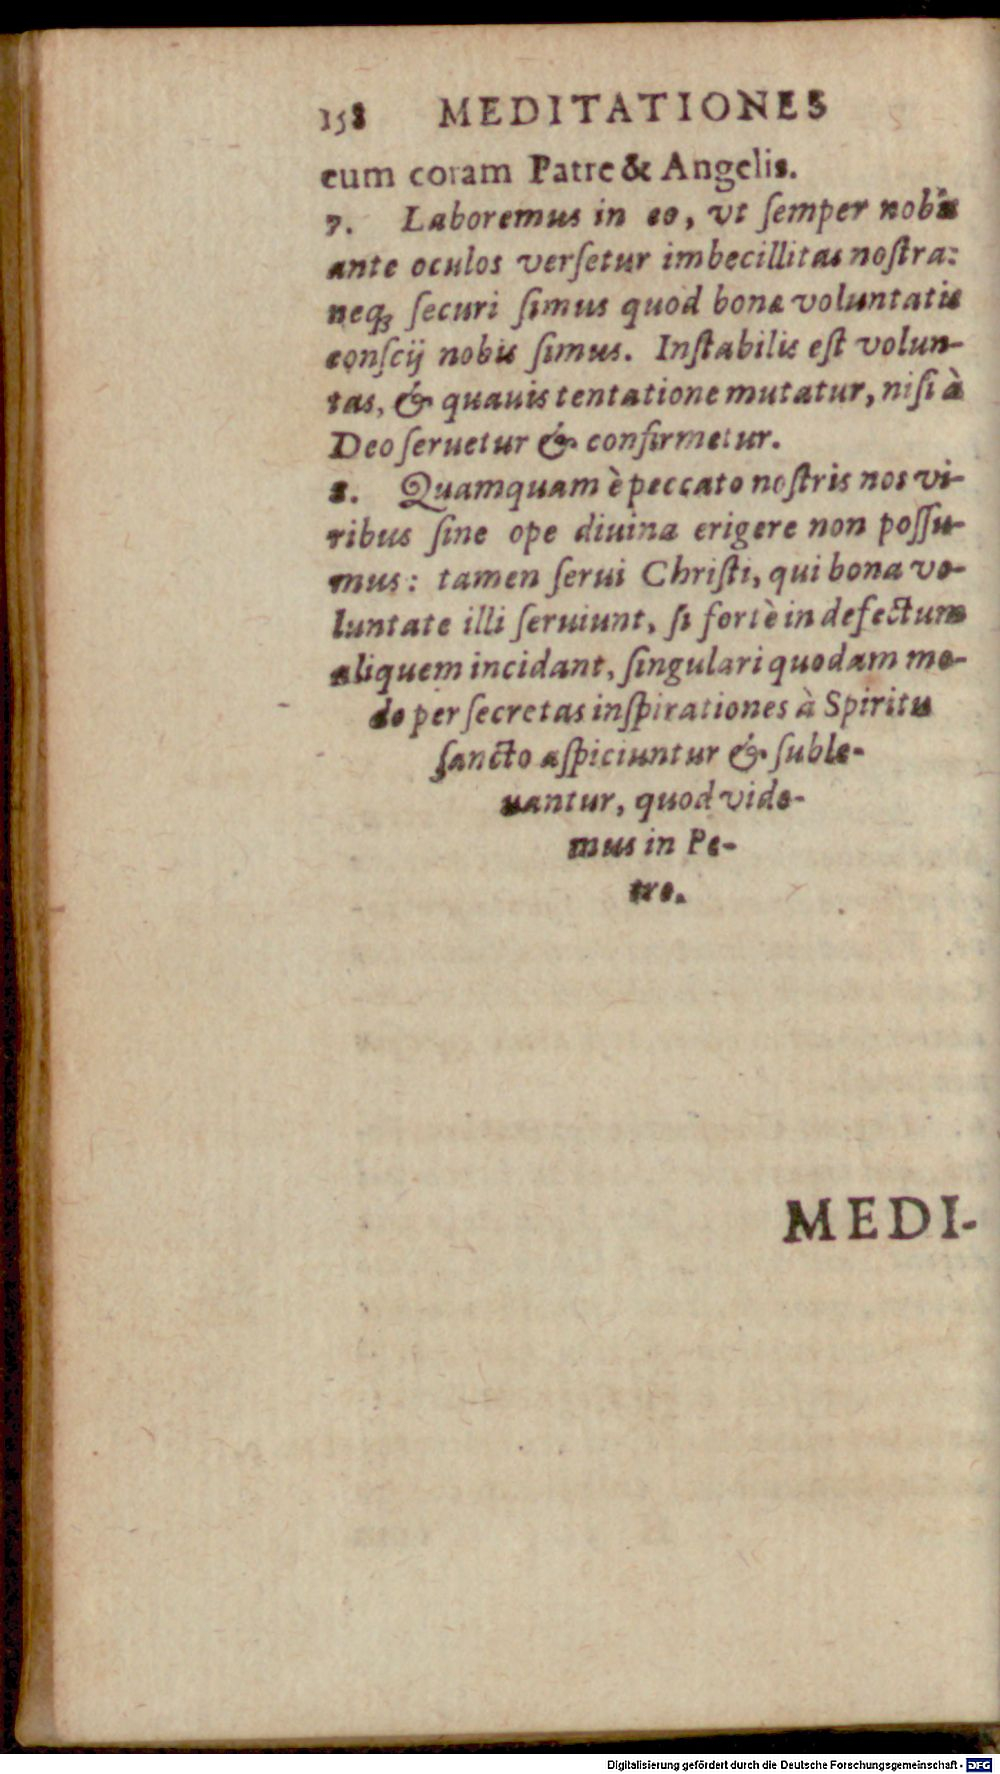 158 MEDITATIONES
eum coram Patre & Angelis.
7. Laboremus in eo, vt ſemper nobis
ante oculos verſetur imbecillitas noſtra:
neq; ſecuri ſimus quod bonæ voluntatis
conſcij nobis ſimus. Inſtabilis eſt volun-
tas, & quauis tentatione mutatur, niſi à
Deo ſeruetur & confirmetur.
8. Quamquam è peccato noſtris nos vi-
ribus ſine ope diuina erigere non poſſu-
mus: tamen ſerui Chriſti, qui bona vo-
luntate illi ſeruiunt, ſi fortè in defectum
aliquem incidant, ſingulari quodam mo-
do per ſecretas inſpirationes à Spiritu
ſancto aſpiciuntur & ſuble-
uantur, quod vide-
mus in Pe-
tro.
MEDI-
Digitalisierung gefördert durch die Deutsche Forschungsgemeinschaft - DFG